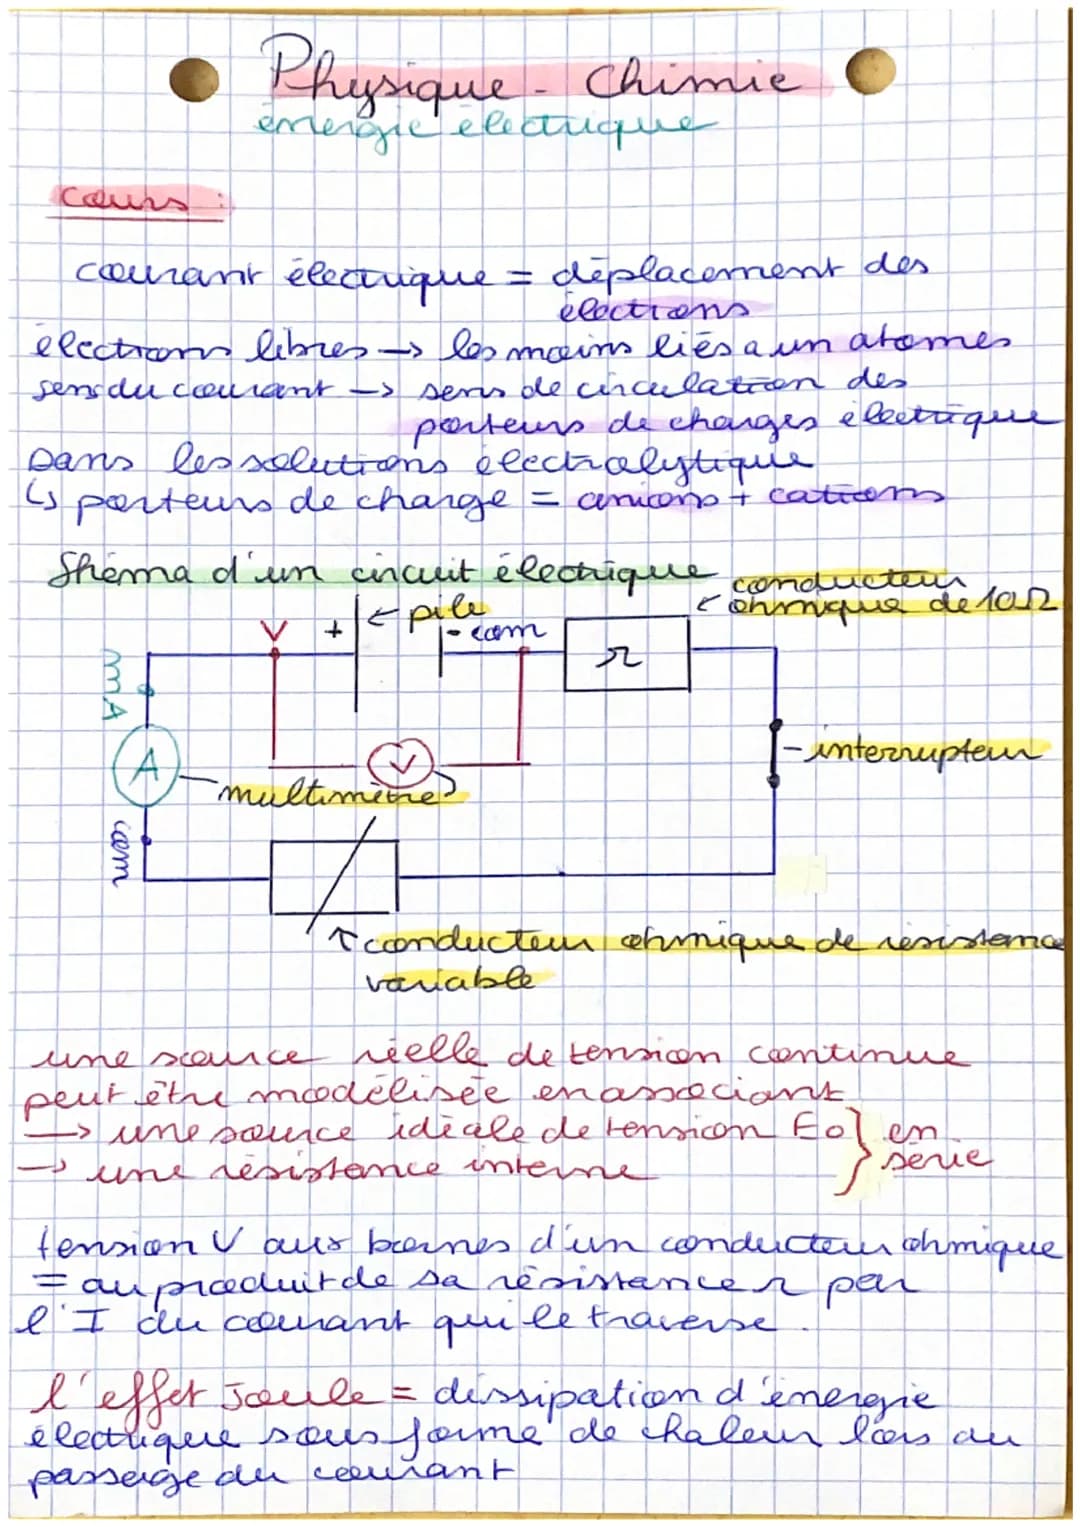 Physique - Chimie
énergie électrique
cours :
courant électrique = déplacement des
électrons
électrons libres → les moins liés a un atomes
sens du courant → sens de circulation des
porteurs de charges électrique
Dans les solutions électrolytique
↳ porteurs de charge = anions + cations
Shéma d'un circuit électrique
conducteur
← ohmique de 10Ω
V + ← pile
- com
r
mA
A
V
- interrupteur
multimètre
com
↑ conducteur ohmique de résistance
variable
une source réelle de tension continue
peut être modélisée en associant
→ une source idéale de tension E0 } en
→ une résistance interne série
tension U aux bornes d'un conducteur ohmique
= au produit de sa résistance r par
l'I du courant qui le traverse.
l'effet Joule = dissipation d'énergie
électrique sous forme de chaleur lors du
passage du courant